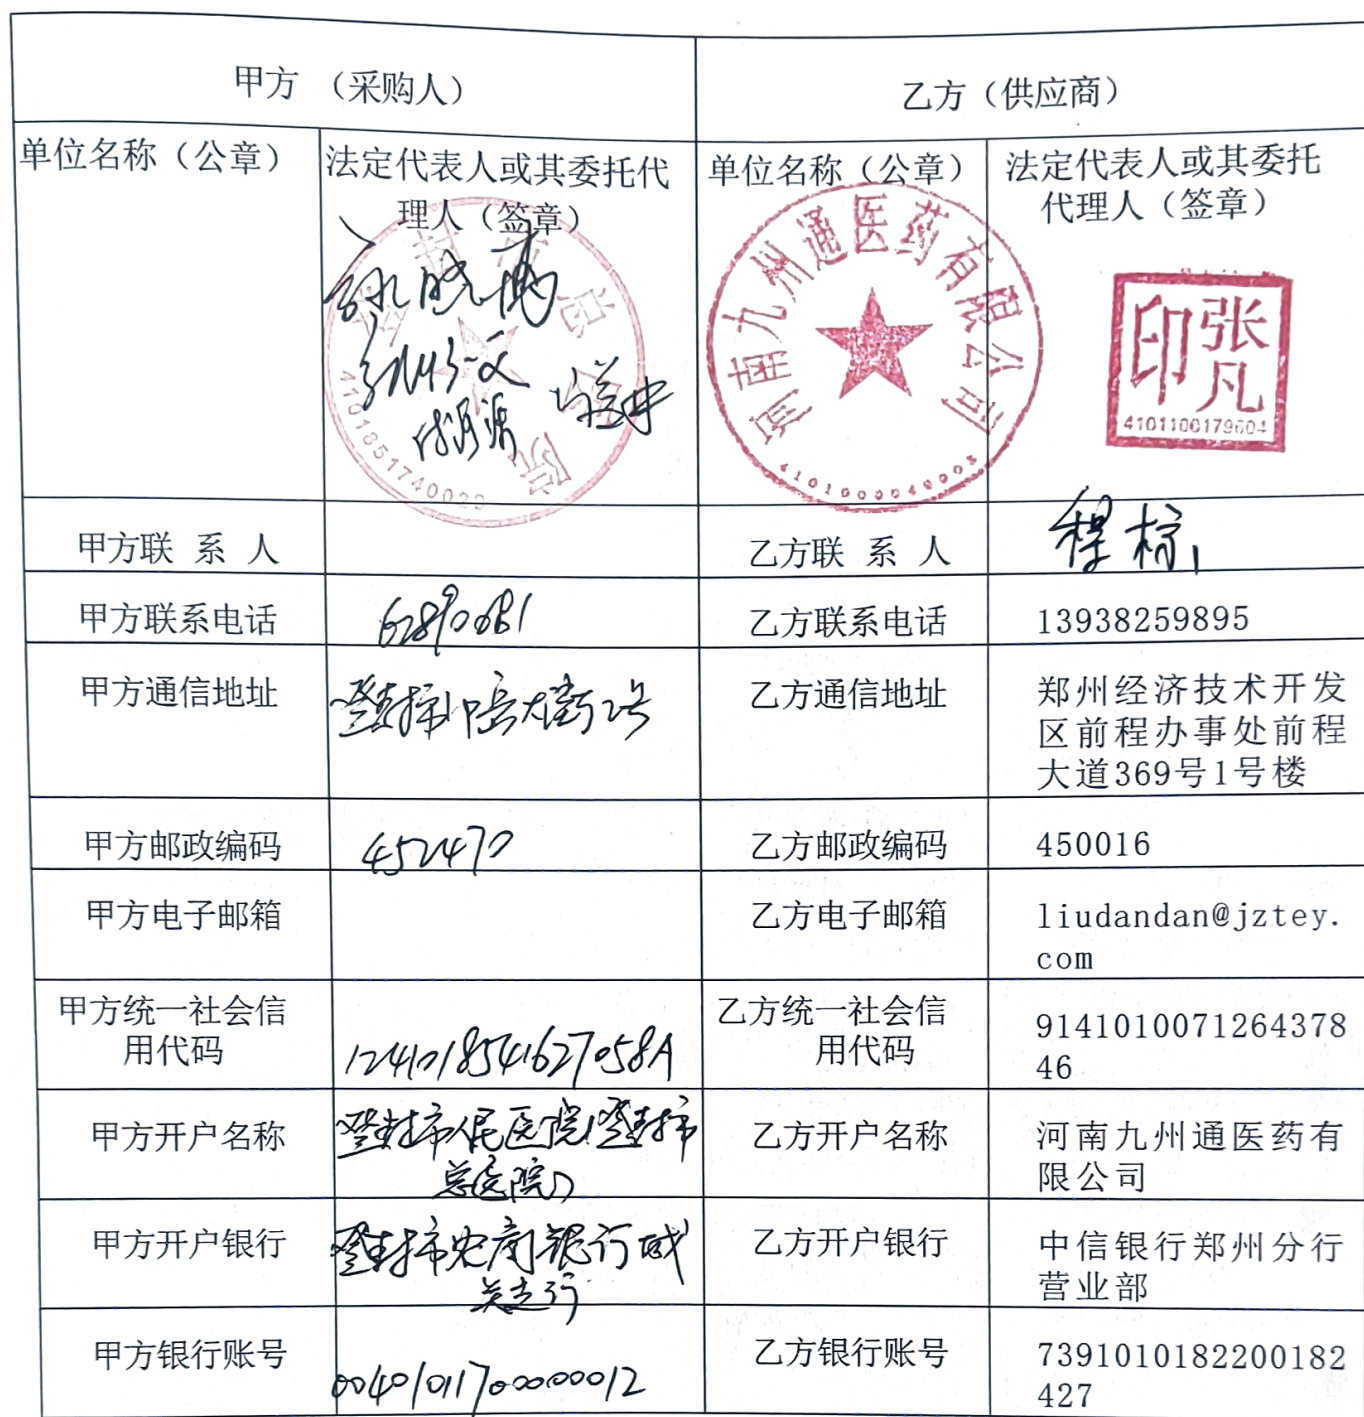 甲方 （采购人）
乙方（供应商）
单位名称（公章）
法定代表人或其委托代
理人（签章）
单位名称（公章）
法定代表人或其委托
代理人（签章）
4101851740029
河南九州通医药有限公司
4101000040003
张凡
印
4101100179604
甲方联 系 人
乙方联 系 人
甲方联系电话
乙方联系电话
13938259895
甲方通信地址
登封市中岳大街2号
乙方通信地址
郑州经济技术开发
区前程办事处前程
大道369号1号楼
甲方邮政编码
452470
乙方邮政编码
450016
甲方电子邮箱
乙方电子邮箱
liudandan@jztey.
com
甲方统一社会信
用代码
12410185416270 58A
乙方统一社会信
用代码
9141010071264378
46
甲方开户名称
登封市人民医院(登封市
总医院)
乙方开户名称
河南九州通医药有
限公司
甲方开户银行
登封市农商银行城
关支行
乙方开户银行
中信银行郑州分行
营业部
甲方银行账号
00401011700000012
乙方银行账号
7391010182200182
427